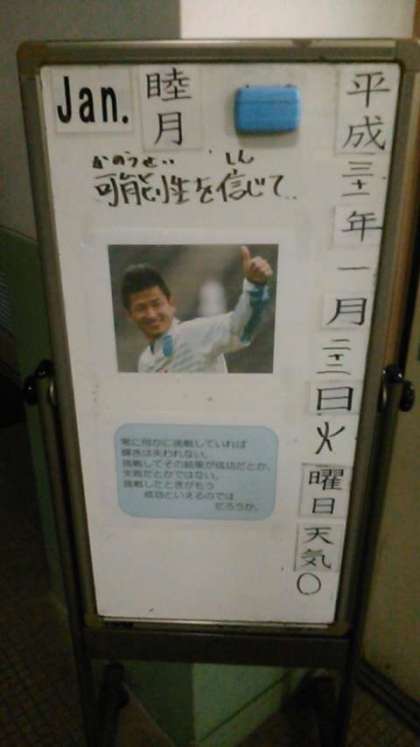 Jan.
睦月
平成三十一年一月二十二日火曜日天気○
かのうせい しん
可能性を信じて
常に何かに挑戦していれば
輝きは失われない。
挑戦してその結果が成功だとか、
失敗だとかではない。
挑戦したときがもう
成功といえるのでは
だろうか。